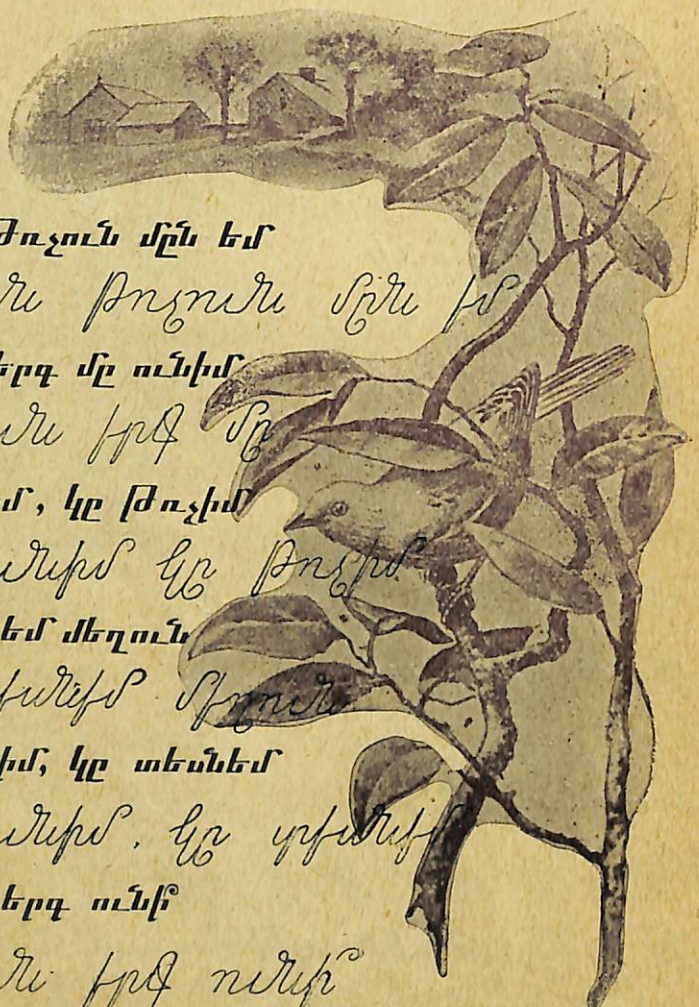 Թռչուն մըն եմ
ն Թռչուն մըն եմ
երգ մը ունիմ
ն երգ մը
մ, կը Թռչիմ
ւնիմ կը Թռչիմ
եմ մեղուն
եսնեմ մեղուն
իմ, կը տեսնեմ
ւնիմ. կը տեսնեմ
երգ ունի՞
ն երգ ունի՞